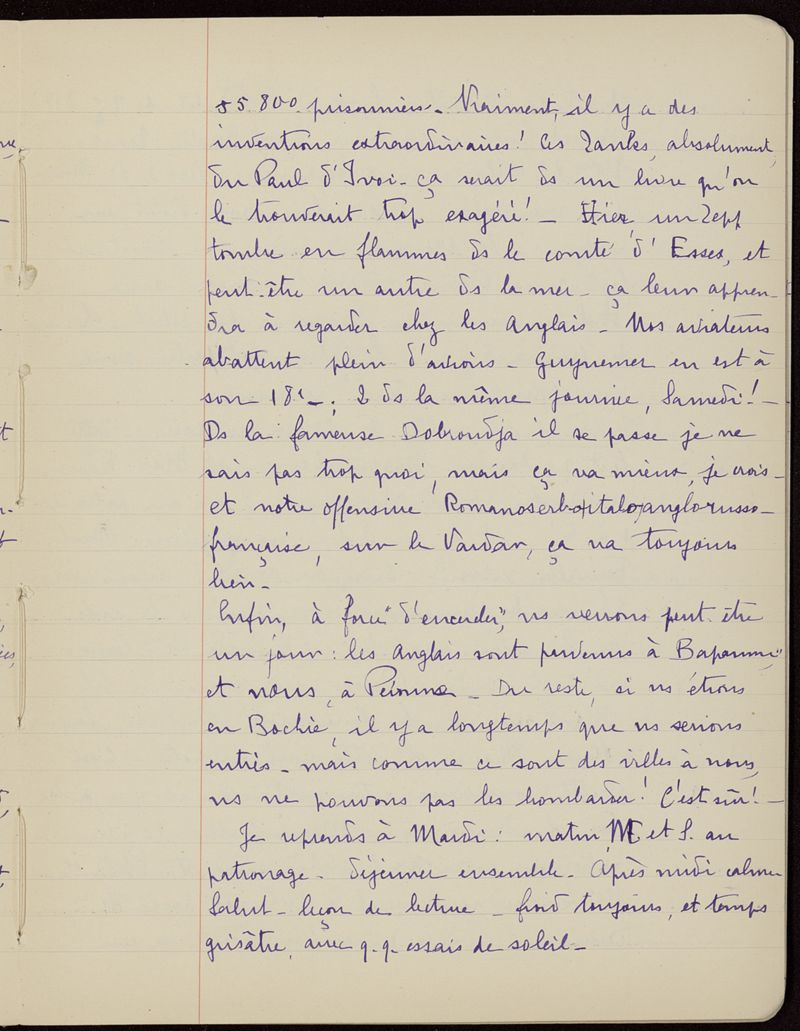 55 800 prisonniers. Vraiment, il y a des
inventions extraordinaires! Ces Tanks, absolument
du Paul d'Ivoi - ça serait ds un livre qu'on
le trouverait trop exagéré! - Hier, un Zepp
tombe en flammes ds le comté d'Essex, et
peut-être un autre ds la mer - ça leur appren-
dra à regarder chez les Anglais - Nos aviateurs
abattent plein d'avions - Guynemer en est à
son 18e -, 2 ds la même journée, Samedi! -
Ds la fameuse Dobroudja il se passe je ne
sais pas trop quoi, mais ça va mieux, je crois -
et notre offensive Romanoserboitaloanglorusso-
française, sur le Vardar, ça va toujours
bien -
Enfin, à force "d'encercler", ns verrons peut-être
un jour: "les Anglais sont parvenus à Bapaume",
et nous, à Péronne - Du reste, si ns étions
en Bochie, il y a longtemps que ns serions
entrés - mais comme ce sont des villes à nous,
ns ne pouvons pas les bombarder! C'est sûr! -
Je reprends à Mardi: matin, M et S. au
patronage - déjeuner ensemble - Après midi calme
Salut - leçon de lecture - froid toujours, et temps
grisâtre, avec q.q. essais de soleil -